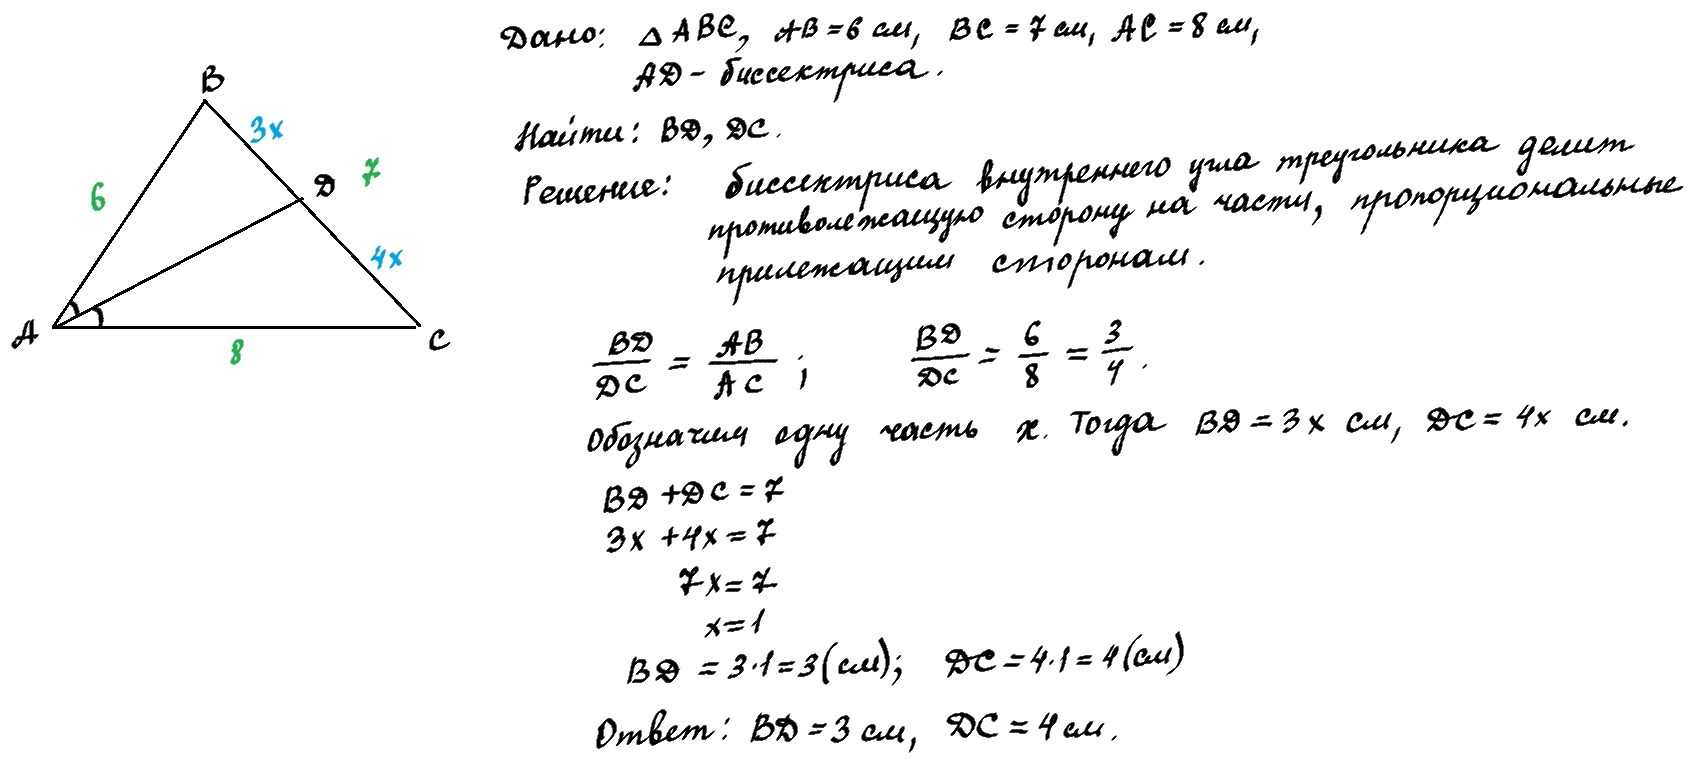 Дано: △ ABC, AB = 6 см, BC = 7 см, AC = 8 см,
AD - биссектриса.
Найти: BD, DC.
Решение: биссектриса внутреннего угла треугольника делит
противолежащую сторону на части, пропорциональные
прилежащим сторонам.
B
3x
D
7
6
4x
A
8
C
BD/DC = AB/AC ; BD/DC = 6/8 = 3/4.
Обозначим одну часть x. Тогда BD = 3x см, DC = 4x см.
BD + DC = 7
3x + 4x = 7
7x = 7
x = 1
BD = 3·1 = 3 (см); DC = 4·1 = 4 (см)
Ответ: BD = 3 см, DC = 4 см.